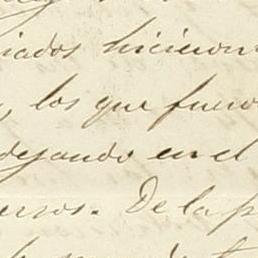 iados hicieron
, los que fuero
dejando en el
ersos. De la p